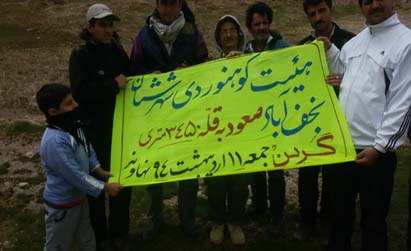 هیئت کوهنوردی شهرستان
نجف آباد صعود به قله ۳۴۵۰ متری
گرین: جمعه ۱۱ اردیبهشت ۹۴ نهاوند